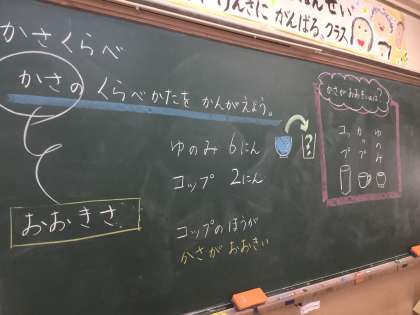 げんきに がんばる、クラス
かさくらべ
かさの くらべかたを かんがえよう。
おおきさ
ゆのみ 6にん
コップ 2にん
コップのほうが
かさが おおきい
?
かさがおおきいのは?
ゆのみ
カップ
コップ